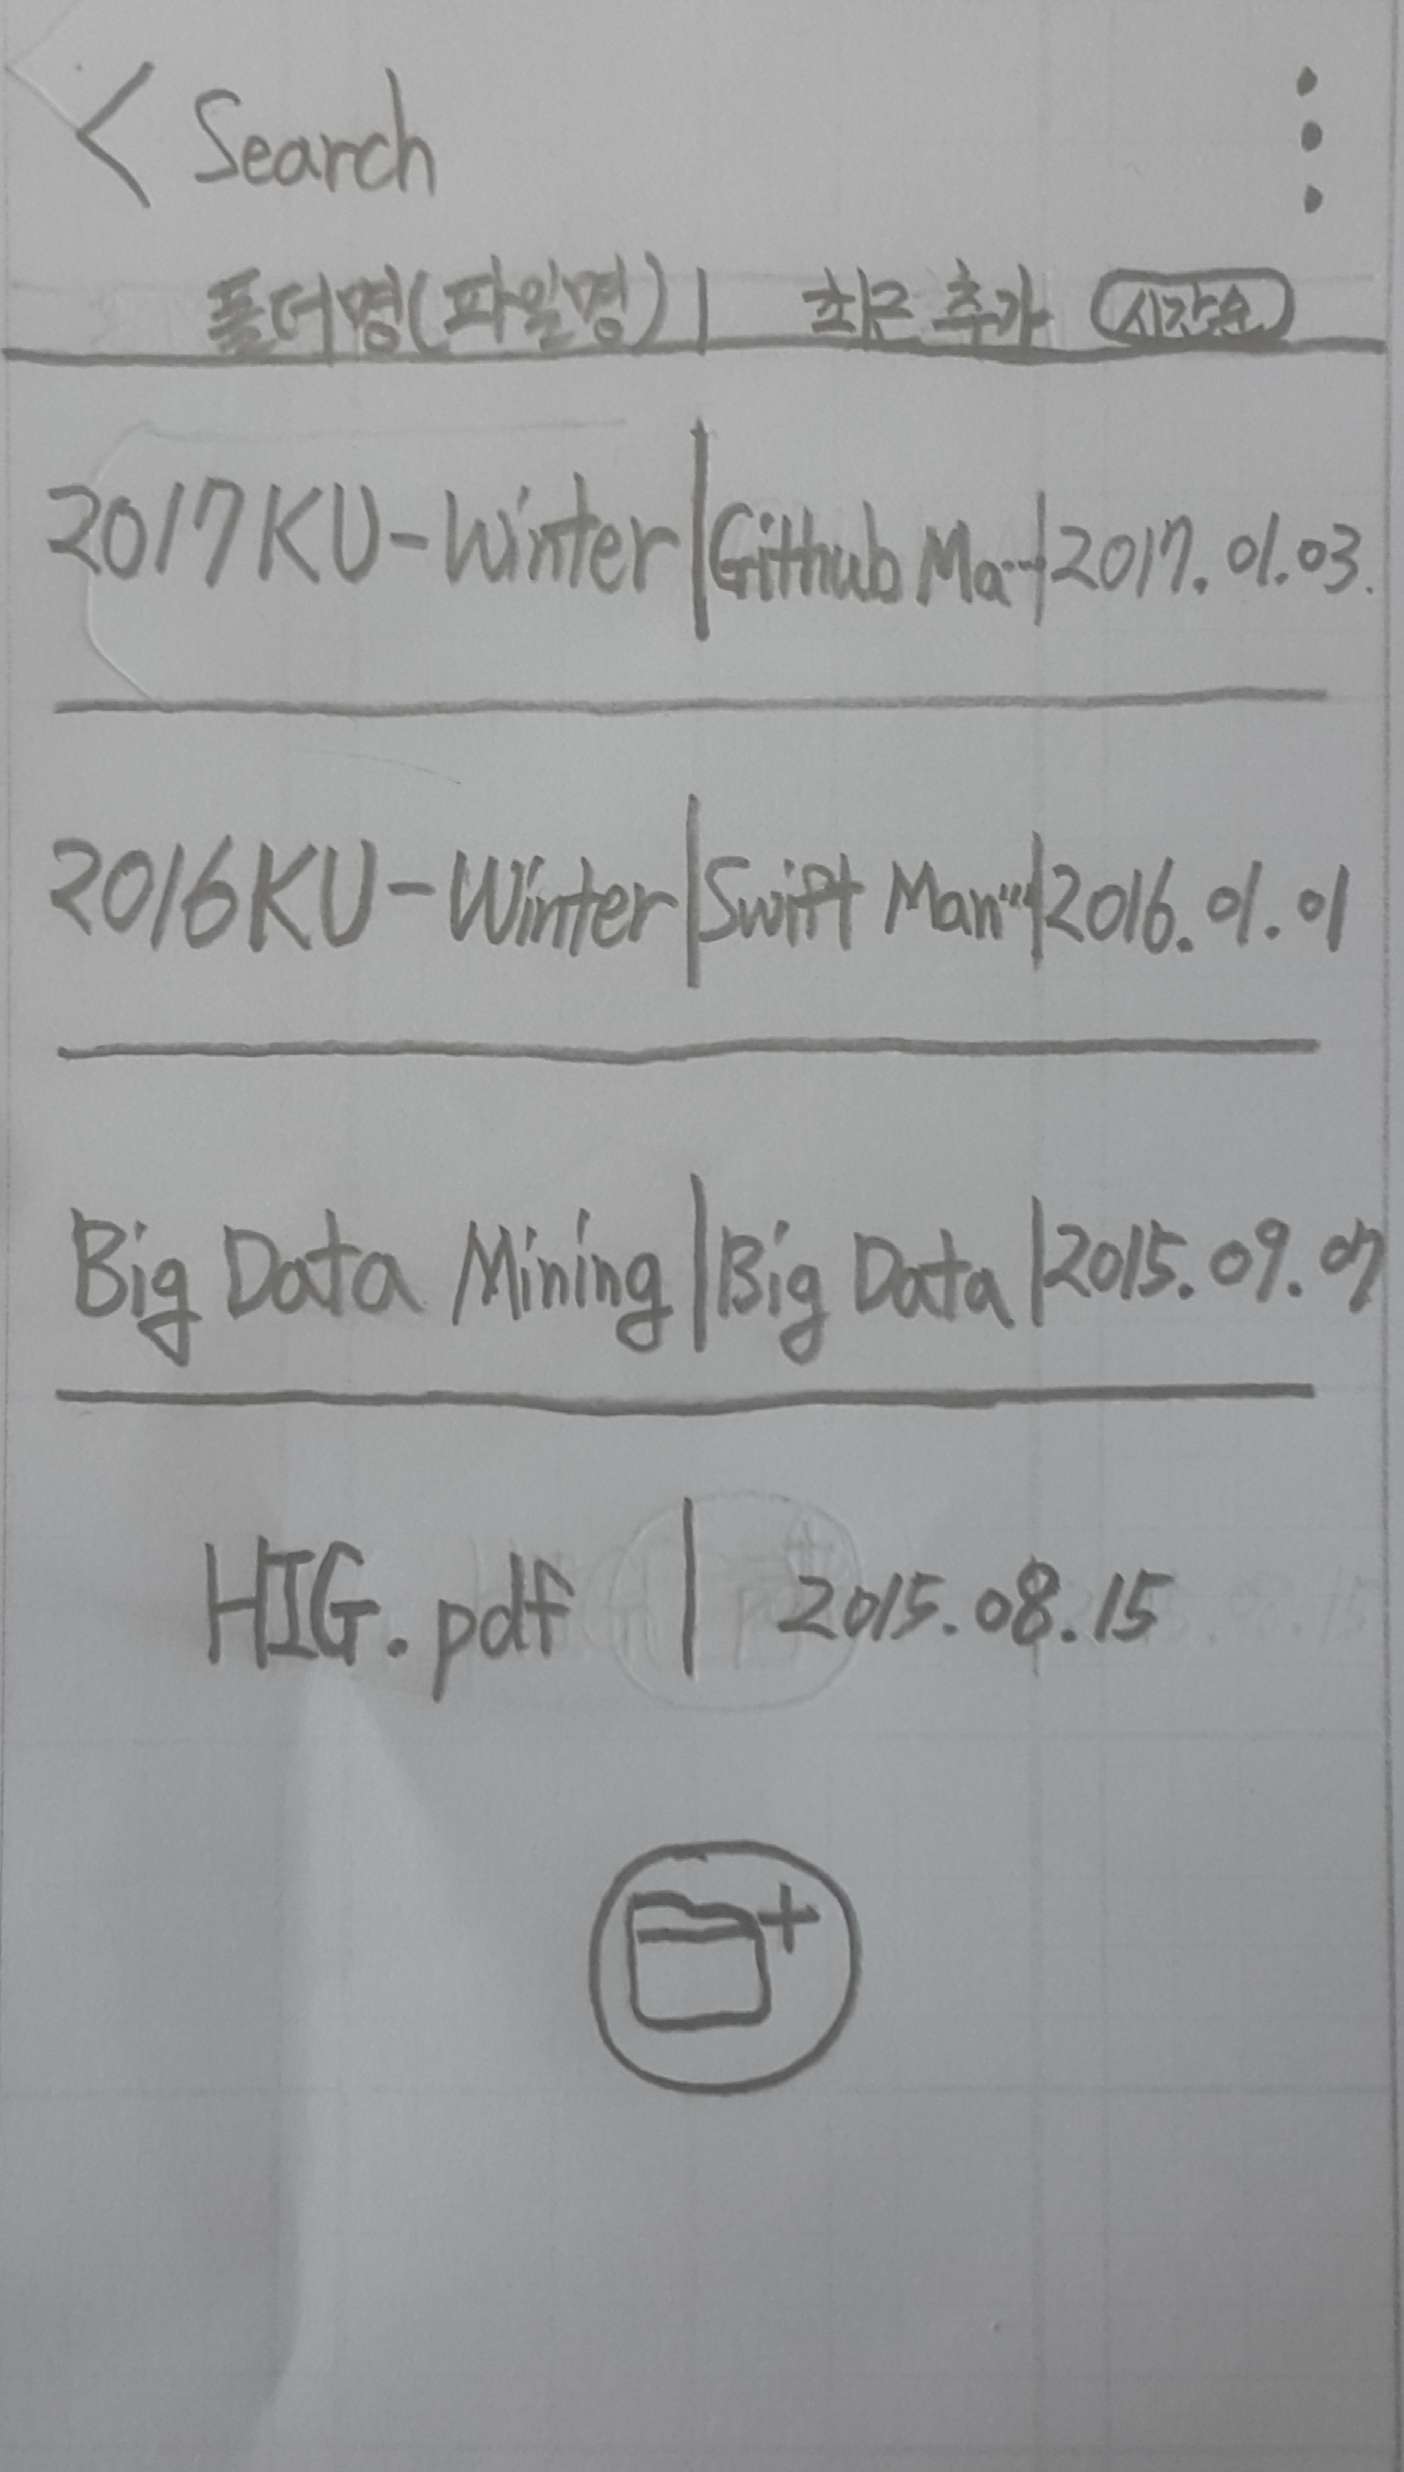 < Search
폴더명(파일명) | 최근 추가 시간순
2017KU-Winter | Github Ma… | 2017.01.03.
2016KU-Winter | Swift Man… | 2016.01.01
Big Data Mining | Big Data | 2015.09.07
HIG.pdf | 2015.08.15